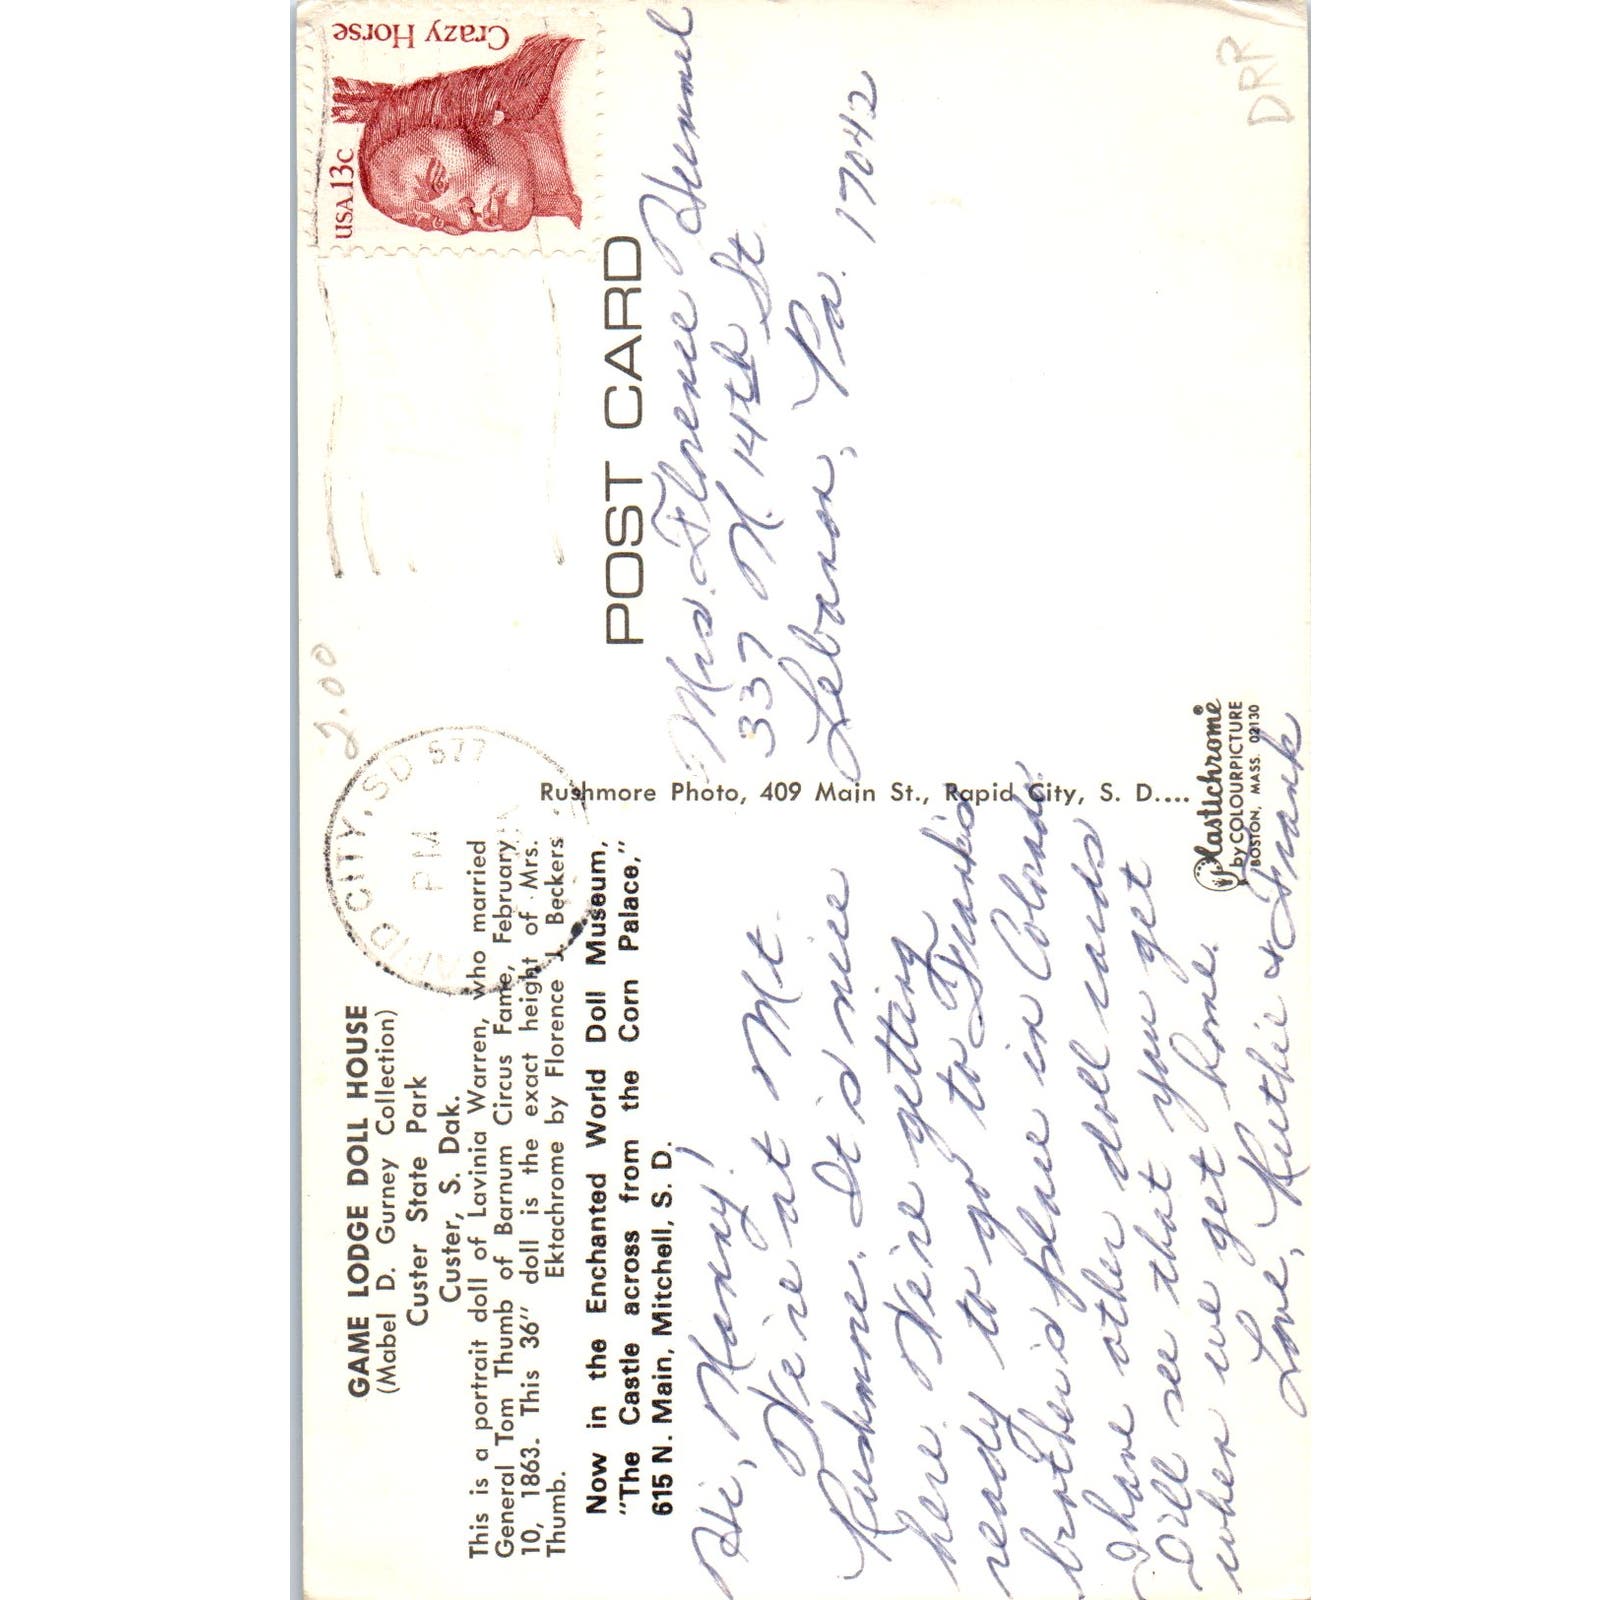 GAME LODGE DOLL HOUSE
(Mabel D. Gurney Collection)
Custer State Park
Custer, S. Dak.
This is a portrait doll of Lavinia Warren, who married
General Tom Thumb of Barnum Circus Fame, February
10, 1863. This 36" doll is the exact height of Mrs.
Thumb.
Ektachrome by Florence J. Beckers
Now in the Enchanted World Doll Museum,
"The Castle across from the Corn Palace,"
615 N. Main, Mitchell, S. D.
Hi, Nanny!
We're at Mt.
Rushmore. It is nice
here. We're getting
ready to go to Frank's
brother's place in Colorado.
I have other doll cards
I'll see that you get
when we get home.
Love, Ruthie & Frank
Rushmore Photo, 409 Main St., Rapid City, S. D....
Plastichrome®
by COLOURPICTURE
BOSTON, MASS. 02130
2.00
RAPID CITY, SD 577
PM
USA 13c
Crazy Horse
POST CARD
Mrs. Florence Hummel
337 N. 14th St
Lebanon, Pa. 17042
DRP